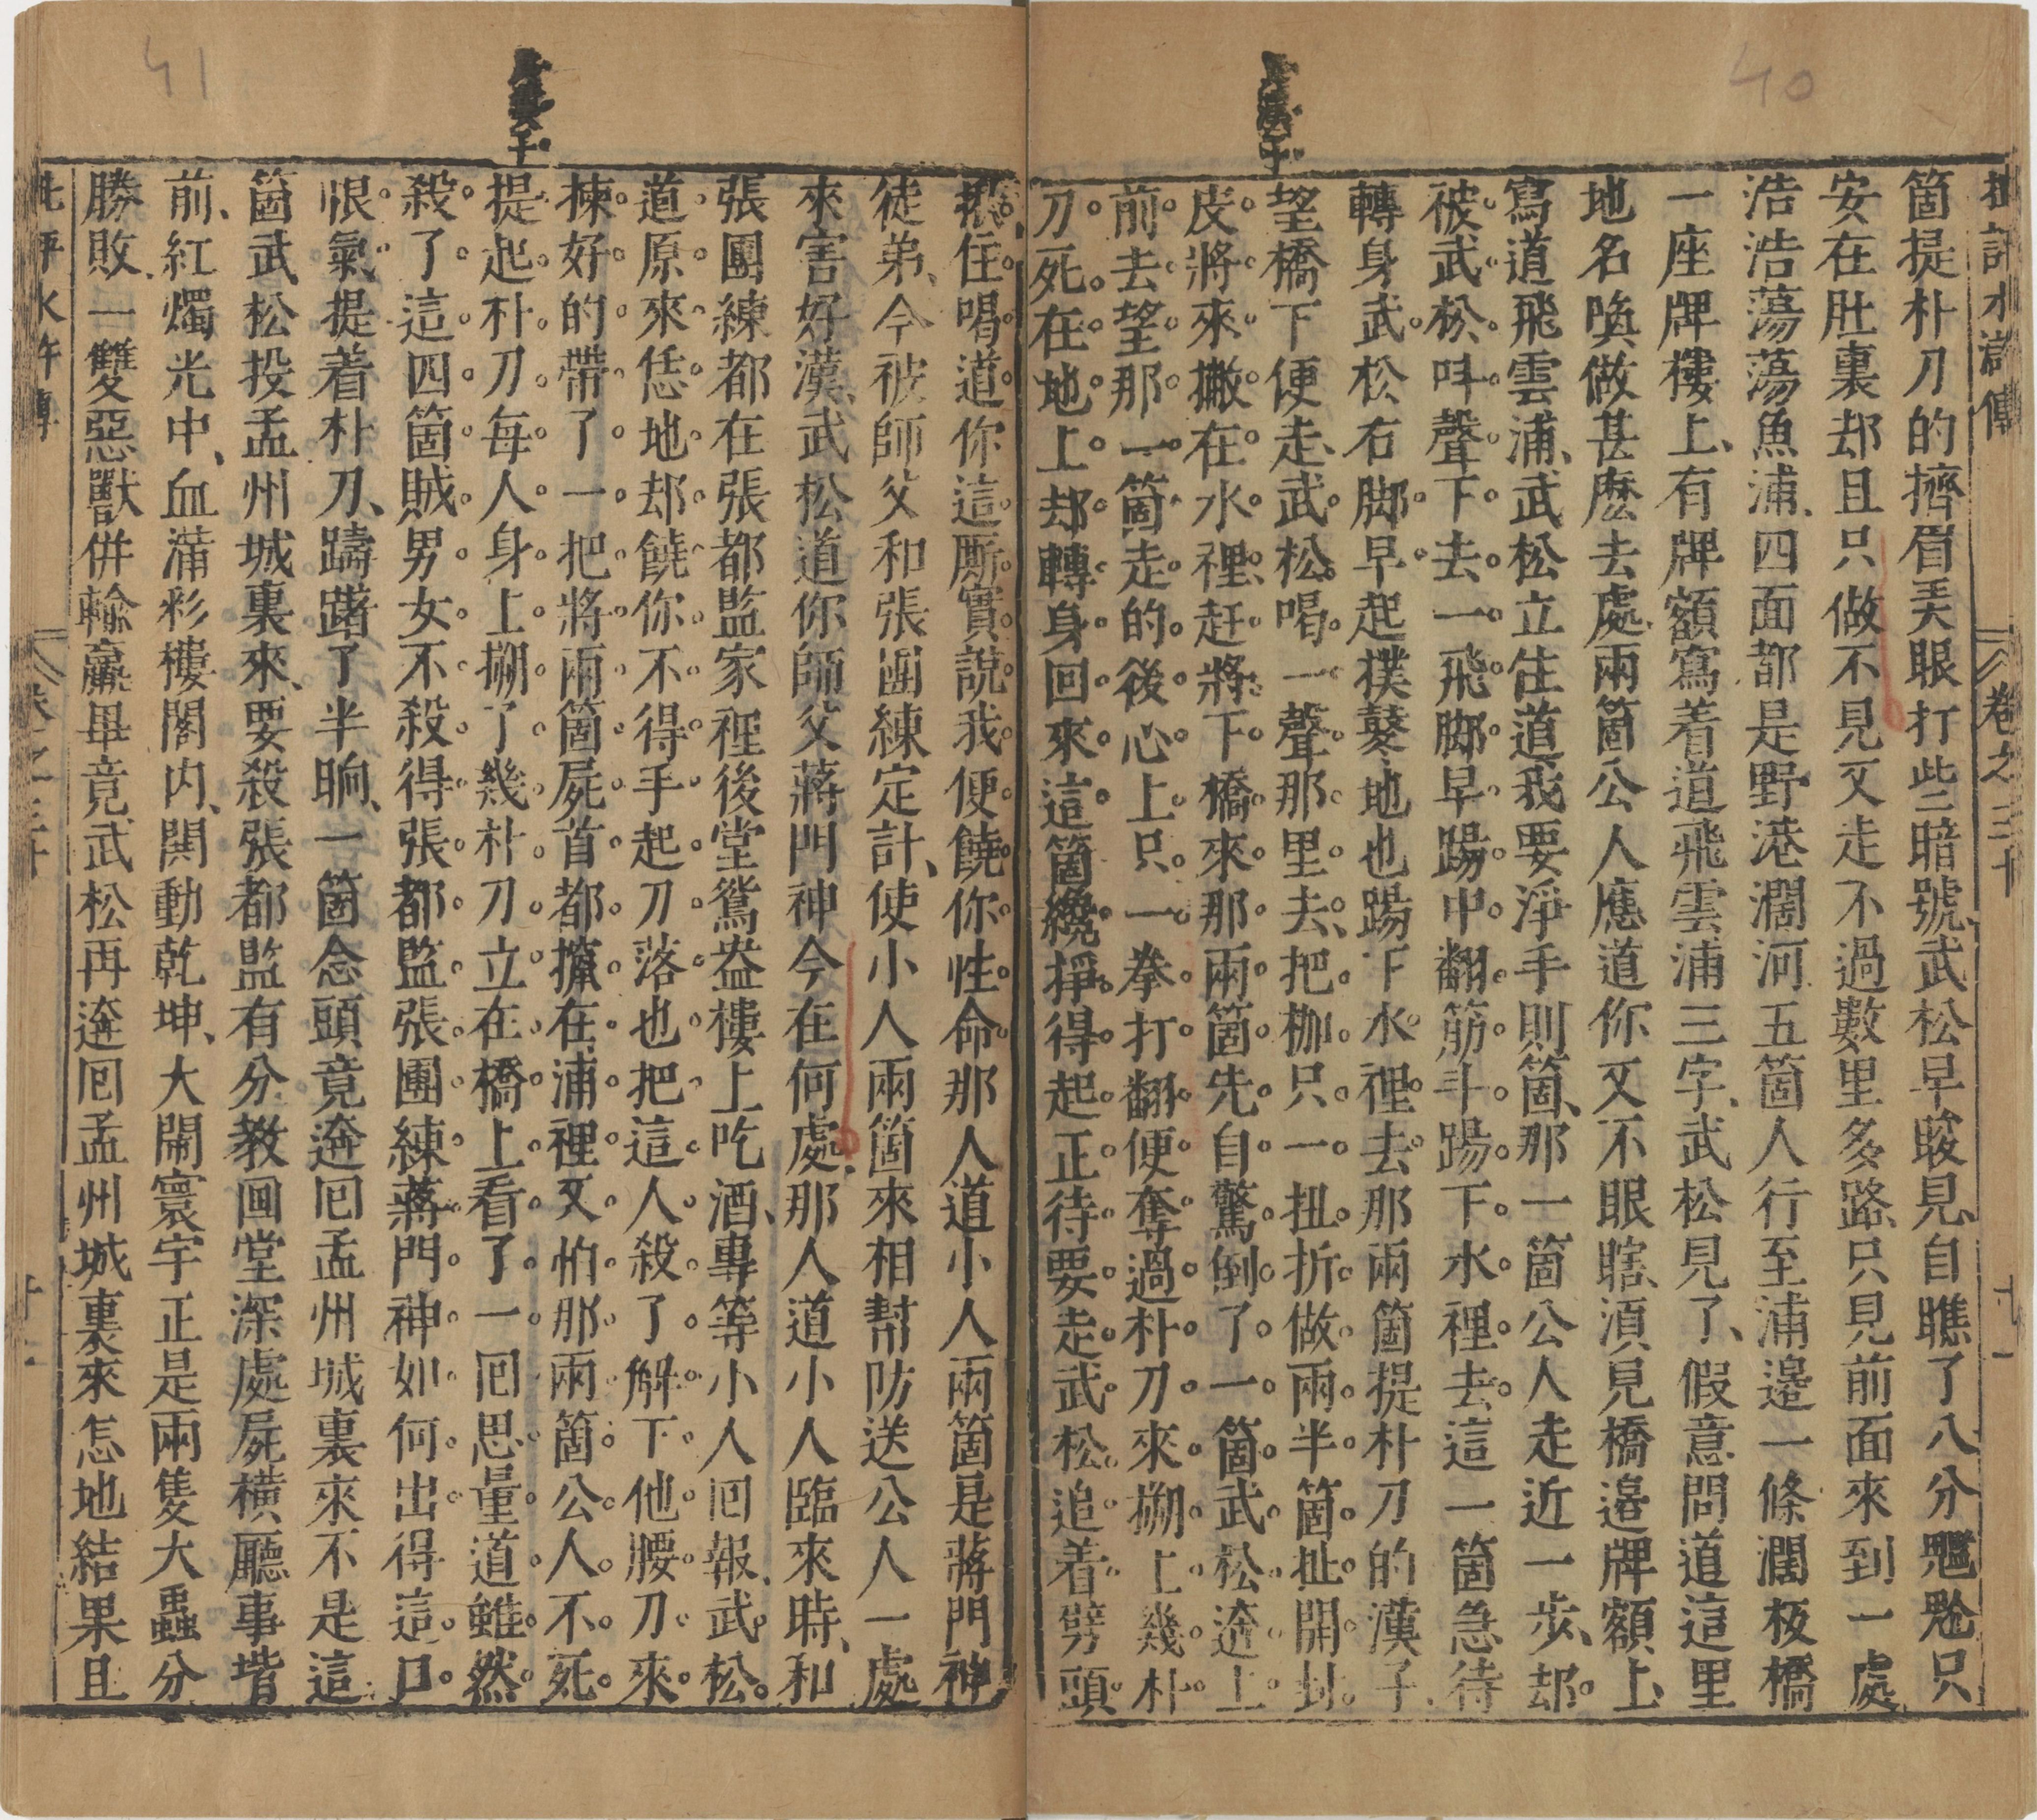 40
批評水滸傳
卷之三十
十一
箇提朴刀的擠眉弄眼打些暗號、武松早睃見、自瞧了八分尷尬只
安在肚裏却且只做不見又走不過數里多路、只見前面來到一處
浩浩蕩蕩魚浦、四面都是野港濶河五箇人行至浦邊一條濶板橋
一座牌樓上、有牌額寫着道飛雲浦三字、武松見了、假意問道這里
地名喚做甚麽去處、兩箇公人應道你又不眼瞎、湏見橋邉牌額上、
寫道飛雲浦、武松立住道、我要淨手則箇、那一箇公人走近一歩、却
被武松呌聲下去一飛脚早踢中翻筋斗踢下水裡去這一箇急待
轉身武松右脚早起撲鼕地也踢下水裡去那兩箇提朴刀的漢子、
望橋下便走、武松喝一聲那里去、把枷只一扭折做兩半箇扯開封
皮將來撇在水裡、赶將下橋來那兩箇先自驚倒了一箇武松逩上
前去望那一箇走的後心上只一拳打翻便奪過朴刀來搠上幾朴
刀死在地上却轉身回來這箇纔掙得起正待要走武松追着劈頭
41
揪住喝道你這厮實說我便饒你性命那人道小人兩箇是蔣門神
徒弟、今被師父和張團練定計、使小人兩箇來相幫防送公人一處
來害好漢、武松道你師父蔣門神今在何處、那人道小人臨來時、和
張團練都在張都監家裡後堂鴛鴦樓上吃酒、專等小人囘報、武松
道原來恁地却饒你不得手起刀落也把這人殺了解下他腰刀來
揀好的帶了一把將兩箇屍首都攛在浦裡又怕那兩箇公人不死
提起朴刀每人身上搠了幾朴刀立在橋上看了一囘思量道雖然
殺了這四箇賊男女不殺得張都監張團練蔣門神如何出得這口
恨氣提着朴刀、躊躇了半晌、一箇念頭竟逩囘孟州城裏來不是這
箇武松投孟州城裏來、要殺張都監有分教畫堂深處屍橫廳事堦
前、紅燭光中、血滿彩樓閣内、閧動乾坤、大鬧寰宇正是兩隻大蟲分
勝敗、一雙惡獸併輸贏畢竟武松再逩囘孟州城裏來怎地結果且
批評水滸傳
卷之三十